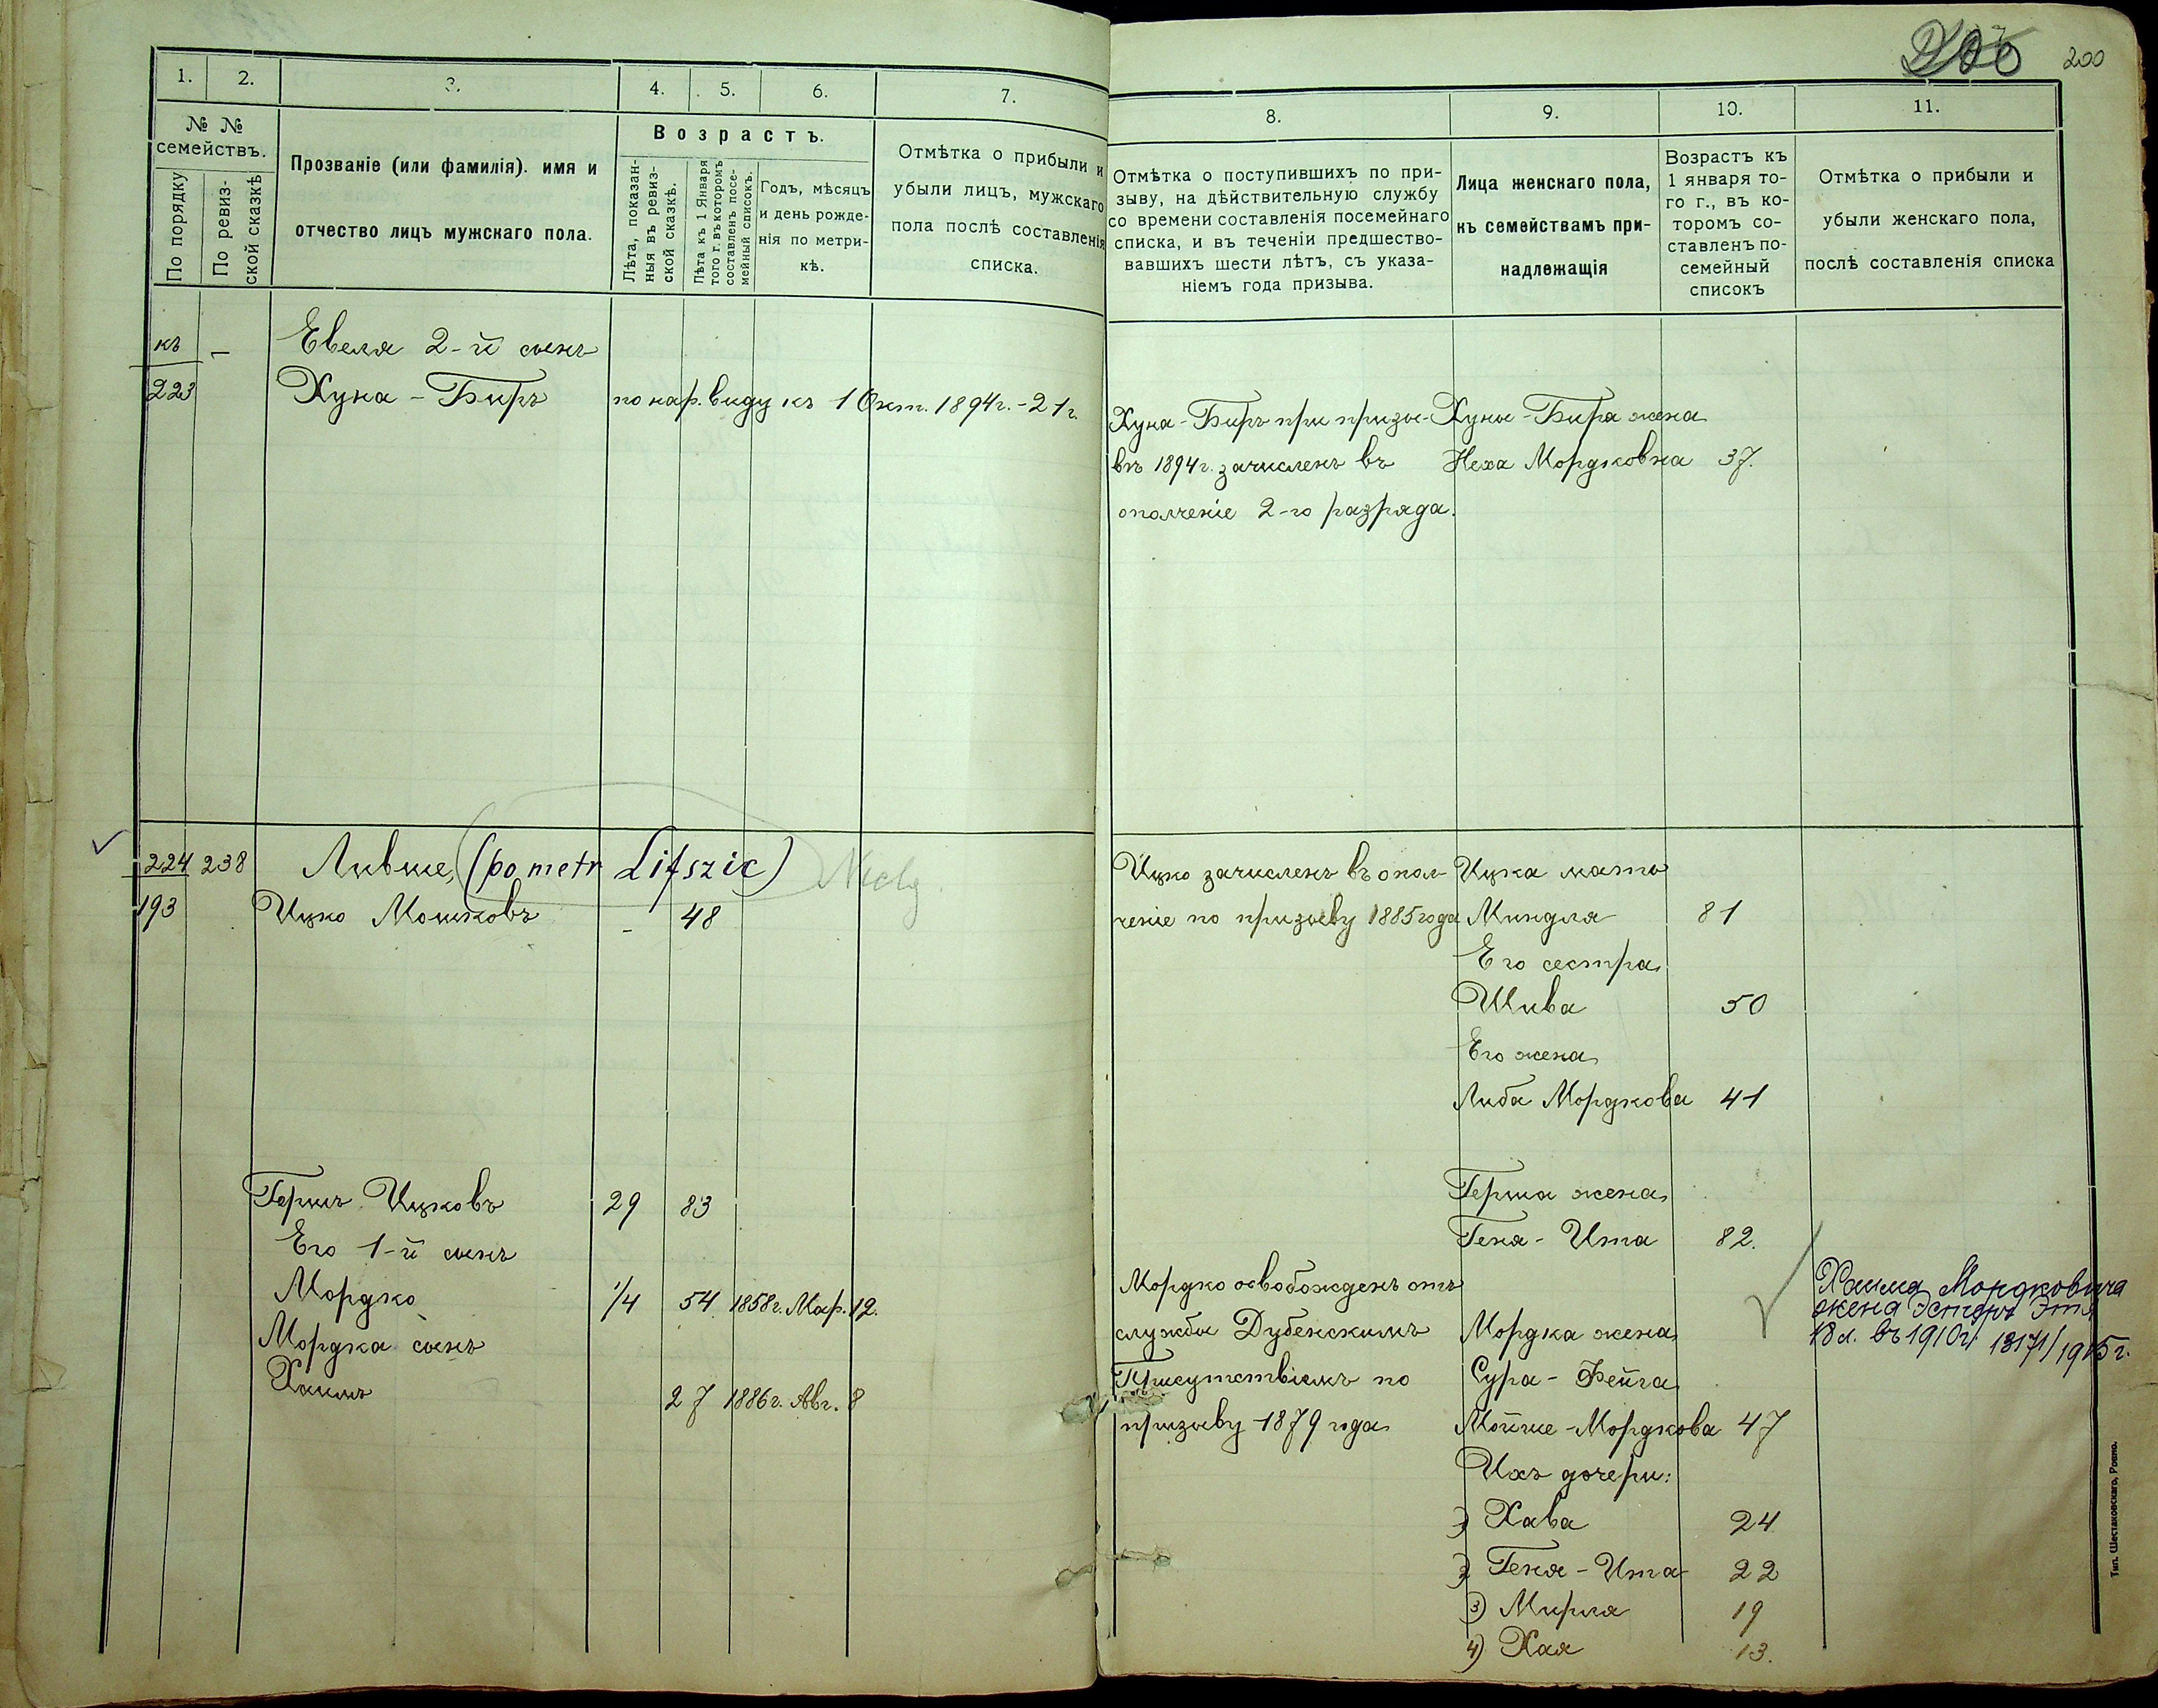 206 200
1. 2. 3. 4. 5. 6. 7.
№ №
семействъ.
По порядку
По ревиз-
ской сказкѣ
Прозваніе (или фамилія). имя и
отчество лицъ мужскаго пола.
Возрастъ.
Лѣта, показан-
ныя въ ревиз-
ской сказкѣ.
Лѣта къ 1 Января
того г. въ которомъ
составленъ посе-
мейный списокъ.
Годъ, мѣсяцъ
и день рожде-
нія по метри-
кѣ.
Отмѣтка о прибыли и
убыли лицъ, мужскаго
пола послѣ составленія
списка.
къ 1
223
Евеля 2-й сынъ
Хуна-Биръ
по нар. виду къ 1 Окт. 1894 г. - 21 г.
224 238
193
Лившe, (po metr Lifszic)
Ицко Мошковъ - 48
Гершъ Ицковъ 29 83
Его 1-й сынъ
Мордко 1/4 54 1858 г. Мар. 12.
Мордка сынъ
Хаимъ 27 1886 г. Авг. 8
8. 9. 10. 11.
Отмѣтка о поступившихъ по при-
зыву, на дѣйствительную службу
со времени составленія посемейнаго
списка, и въ теченіи предшество-
вавшихъ шести лѣтъ, съ указа-
ніемъ года призыва.
Лица женскаго пола,
къ семействамъ при-
надлежащія
Возрастъ къ
1 января то-
го г., въ ко-
торомъ со-
ставленъ по-
семейный
списокъ
Отмѣтка о прибыли и
убыли женскаго пола,
послѣ составленія списка
Хуна-Биръ при призы-
вѣ 1894 г. зачисленъ въ
ополченіе 2-го разряда.
Хуны-Бира жена
Неха Мордковна 37.
Ицко зачисленъ въ опол-
ченіе по призыву 1885 года
Ицка мать
Миндля 81
Его сестра
Шива 50
Его жена
Либа Мордкова 41
Герша жена
Геня-Ита 82.
Мордко освобожденъ отъ
службы Дубенскимъ
Присутствіемъ по
призыву 1879 года
Мордка жена
Сура-Фейга
Мойше-Мордкова 47
Ихъ дочери:
1) Хава 24
2) Геня-Ита 22
3) Мирля 19
4) Хая 13.
Хаима Мордковича
жена Эстеръ Этя
18 л. въ 1910 г. 13171/1915 г.
Тип. Шестаковскаго, Ровно.